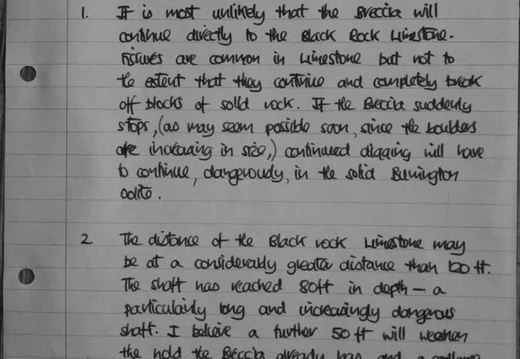 1. It is most unlikely that the Breccia will
continue directly to the Black Rock Limestone.
Fissures are common in Limestone but not to
the extent that they continue and completely break
off blocks of solid rock. If the Breccia suddenly
stops, (as may seem possible soon, since the boulders
are increasing in size,) continued digging will have
to continue, dangerously, in the solid Burrington
oolite.
2 The distance of the Black rock Limestone may
be at a considerably greater distance than 120 ft.
The shaft has reached 80ft in depth - a
particularly long and increasingly dangerous
shaft. I believe a further 50 ft will weaken
the hold the Breccia already has and a